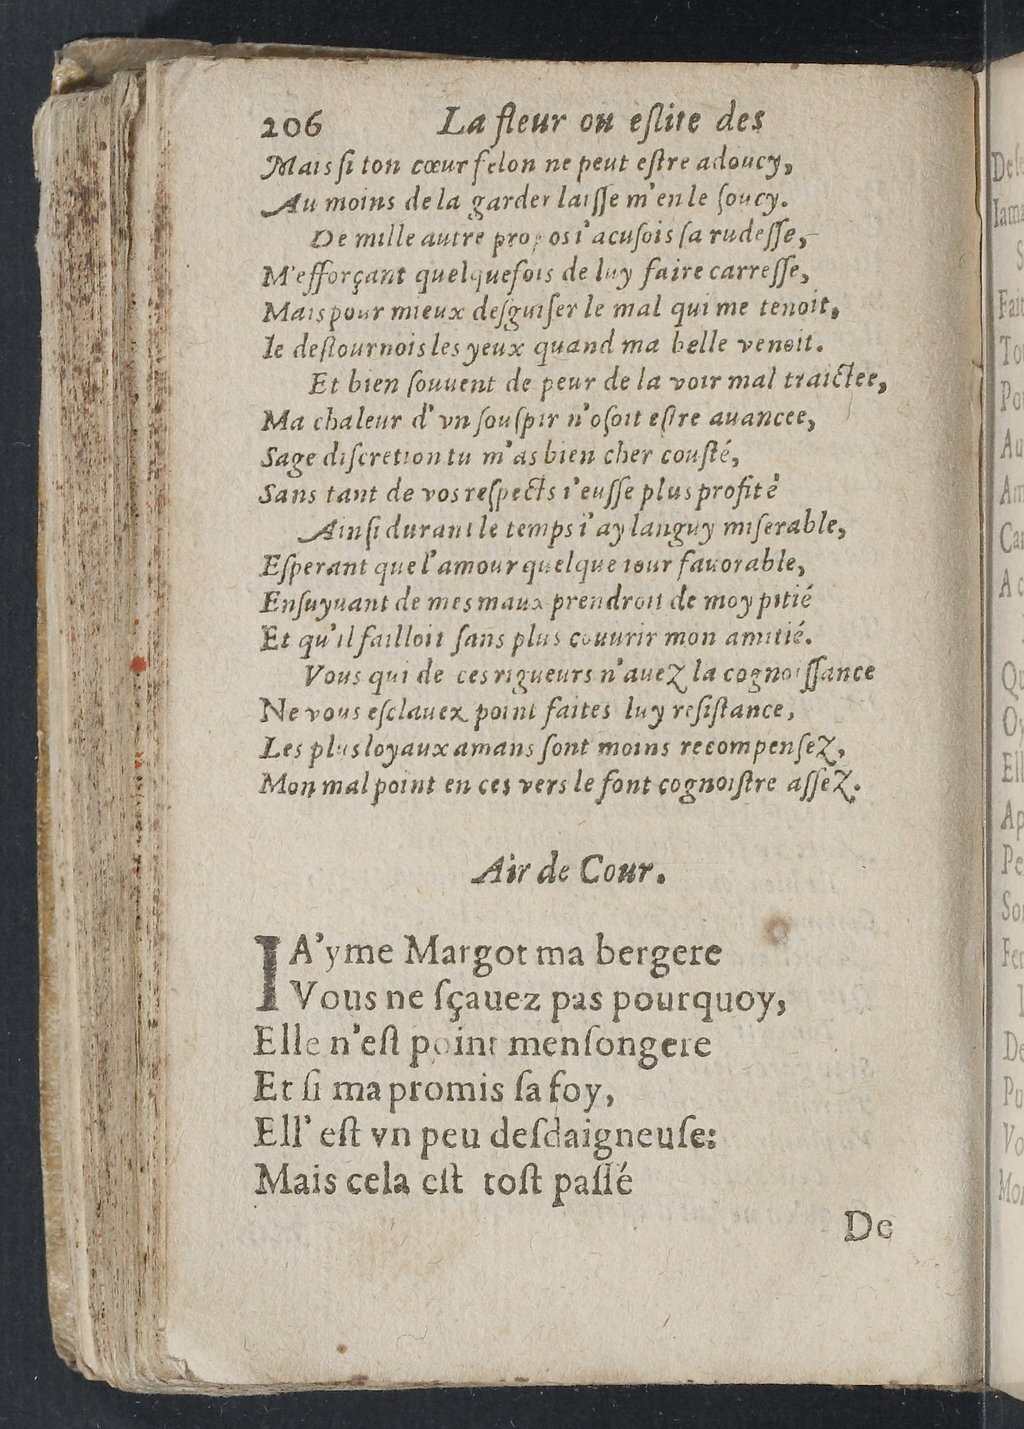 206 La fleur ou eſlite des
Mais ſi ton cœur felon ne peut eſtre adoucy,
Au moins de la garder laiſſe m'en le ſoucy.
De mille autre propos i'acuſois ſa rudeſſe,
M'efforçant quelquefois de luy faire carreſſe,
Mais pour mieux deſguiſer le mal qui me tenoit,
Ie deſtournois les yeux quand ma belle venoit.
Et bien ſouuent de peur de la voir mal traictee,
Ma chaleur d'vn ſouſpir n'oſoit eſtre auancee,
Sage diſcretion tu m'as bien cher couſté,
Sans tant de vos reſpects i'euſſe plus profité
Ainſi durant le temps i'ay languy miſerable,
Eſperant que l'amour quelque iour fauorable,
Enſuyuant de mes maux prendroit de moy pitié
Et qu'il failloit ſans plus couurir mon amitié.
Vous qui de ces rigueurs n'auez la cognoiſſance
Ne vous eſclauez point faites luy reſiſtance,
Les plus loyaux amans ſont moins recompenſez,
Mon mal point en ces vers le font cognoiſtre aſſez.
Air de Cour.
IA'yme Margot ma bergere
Vous ne ſçauez pas pourquoy,
Elle n'eſt point menſongere
Et ſi ma promis ſa foy,
Ell' eſt vn peu deſdaigneuſe:
Mais cela eſt toſt paſſé
De